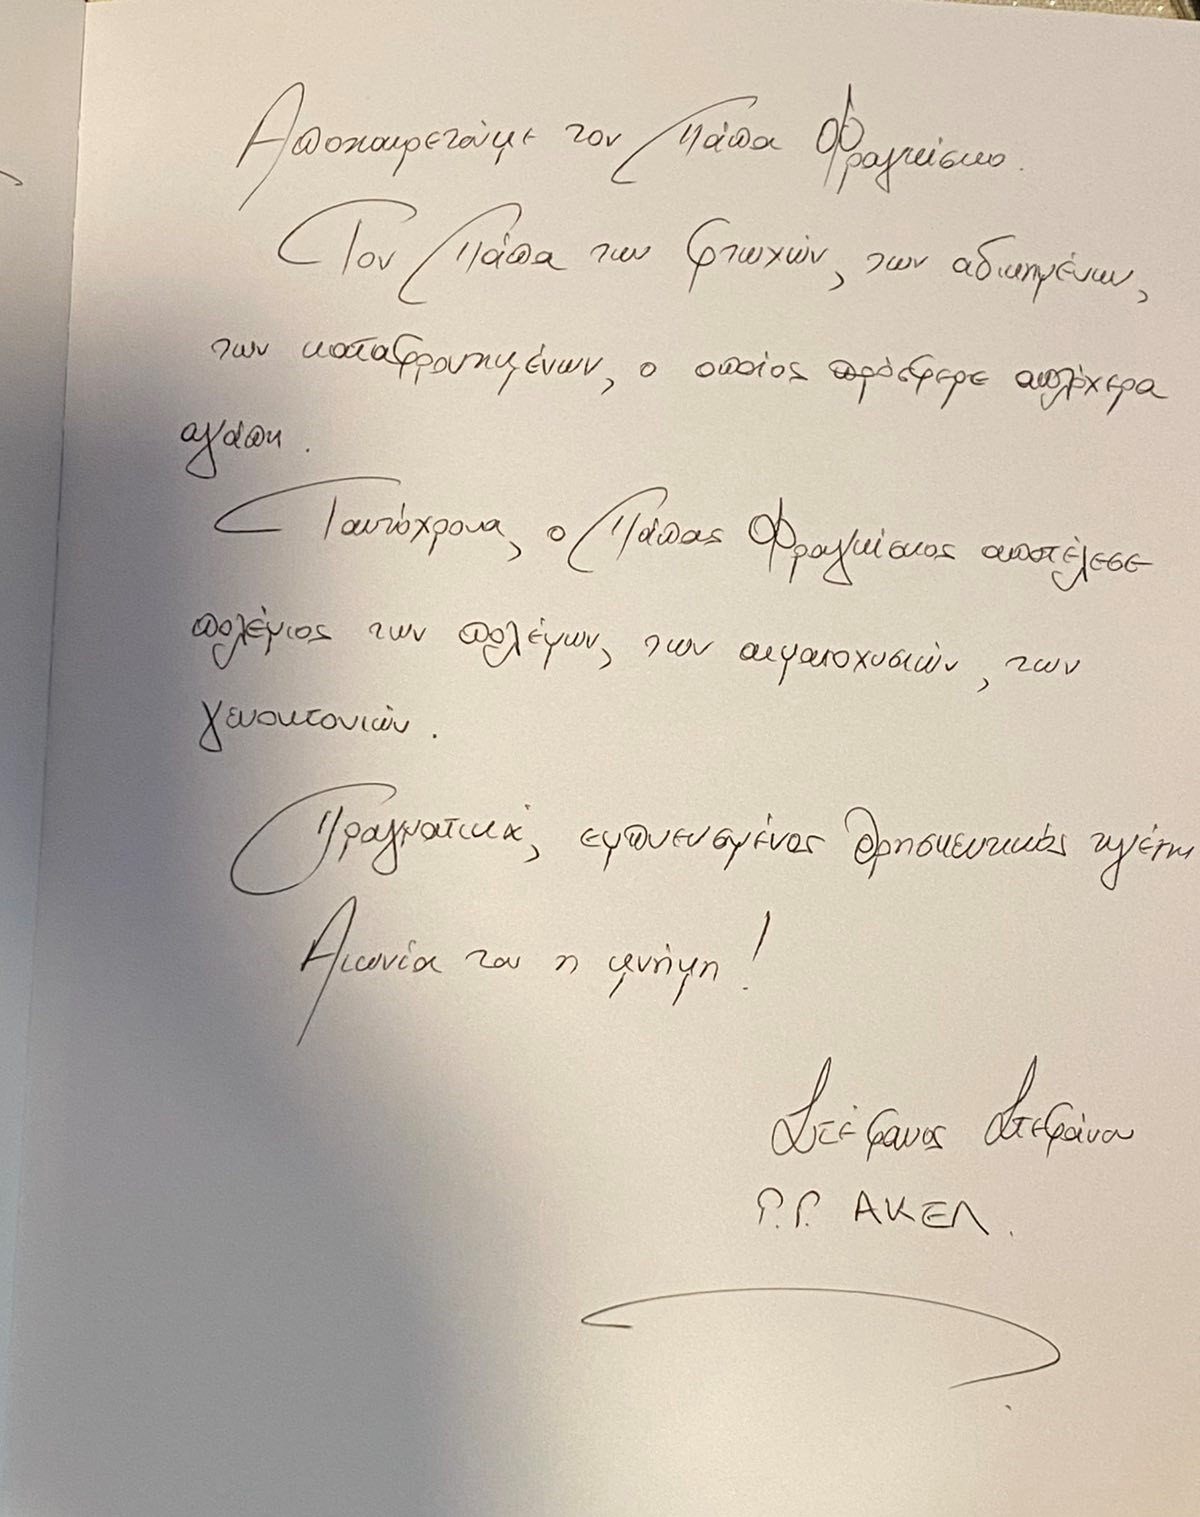 Αποχαιρετούμε τον Πάπα Φραγκίσκο.
Τον Πάπα των φτωχών, των αδικημένων,
των καταφρονημένων, ο οποίος πρόσφερε απλόχερα
αγάπη.
Ταυτόχρονα, ο Πάπας Φραγκίσκος αποτέλεσε
πολέμιος των πολέμων, των αιματοχυσιών, των
γενοκτονιών.
Πραγματικά, εμπνευσμένος θρησκευτικός ηγέτης
Αιωνία του η μνήμη!
Στέφανος Στεφάνου
Γ.Γ. ΑΚΕΛ.